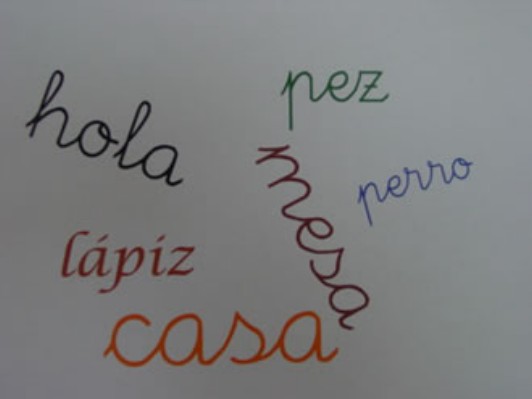 hola
pez
mesa
perro
lápiz
casa